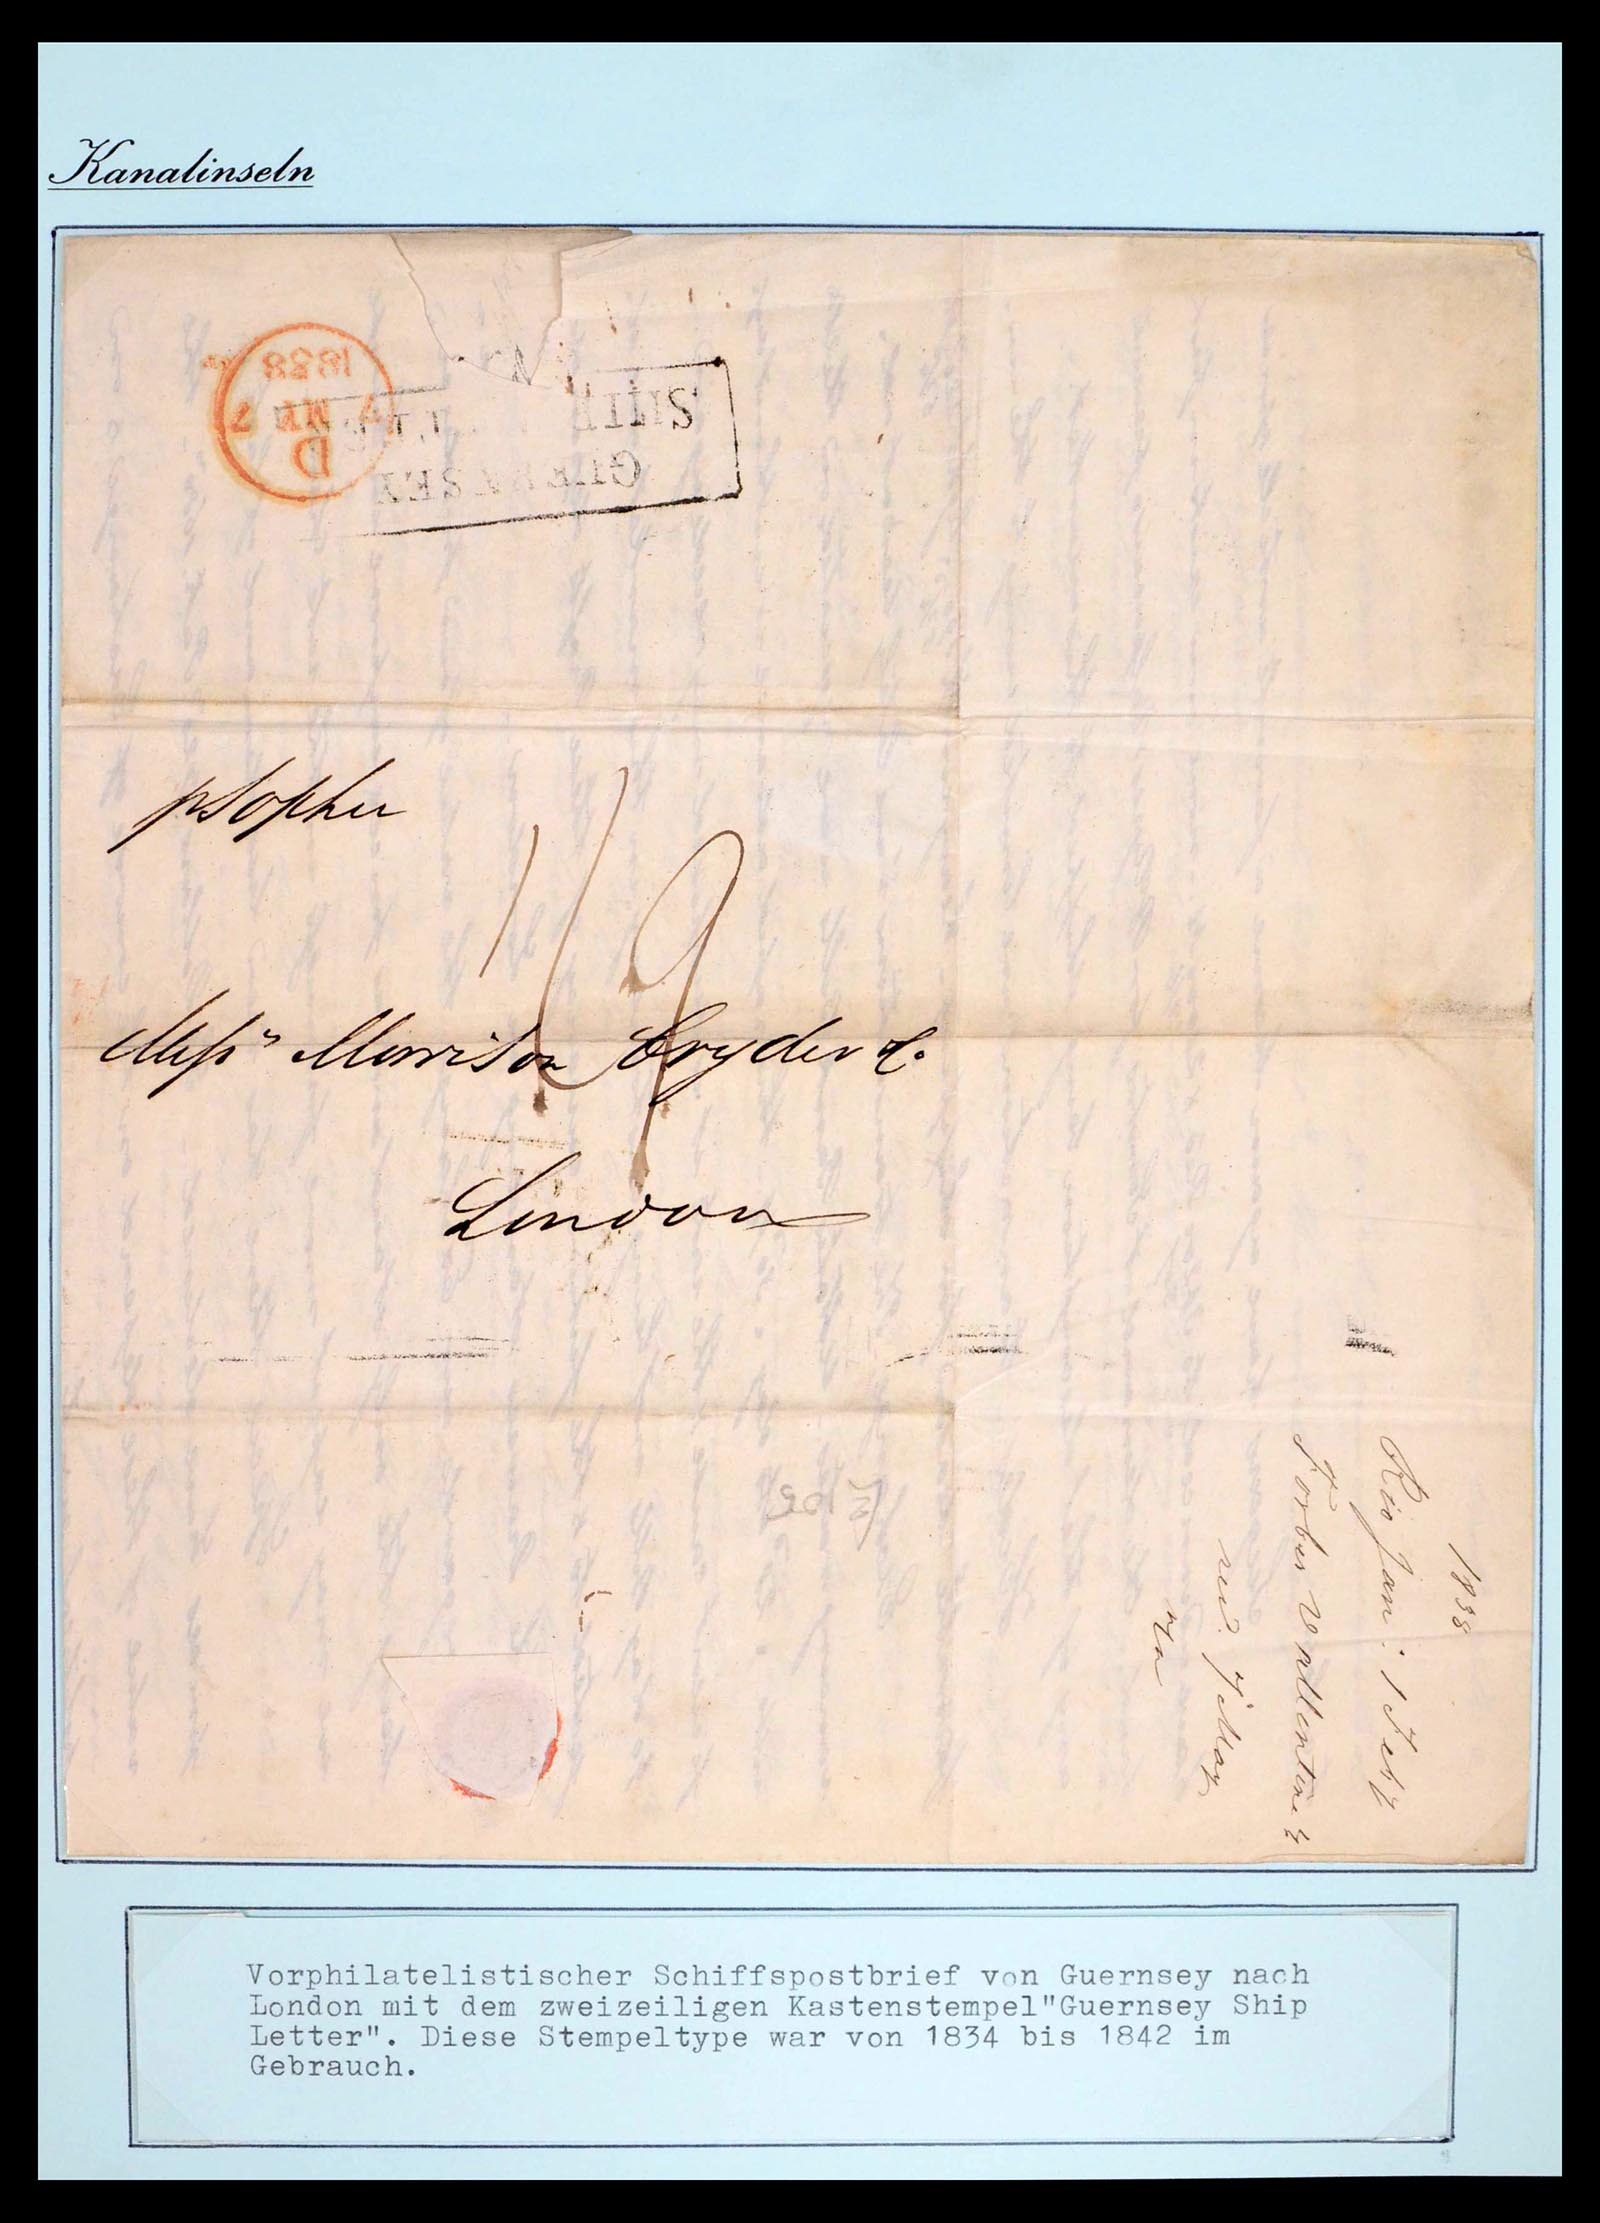 Kanalinseln
D
7 MY 7
1838
GUERNSEY
SHIP LETTER
p Sophia
1/9
Mess^rs Morrison Cryder & Co.
London
1838
Rio Jan: 1 Feby
Forbes Vallentine &
rec. 7 May
Vorphilatelistischer Schiffspostbrief von Guernsey nach
London mit dem zweizeiligen Kastenstempel"Guernsey Ship
Letter". Diese Stempeltype war von 1834 bis 1842 im
Gebrauch.